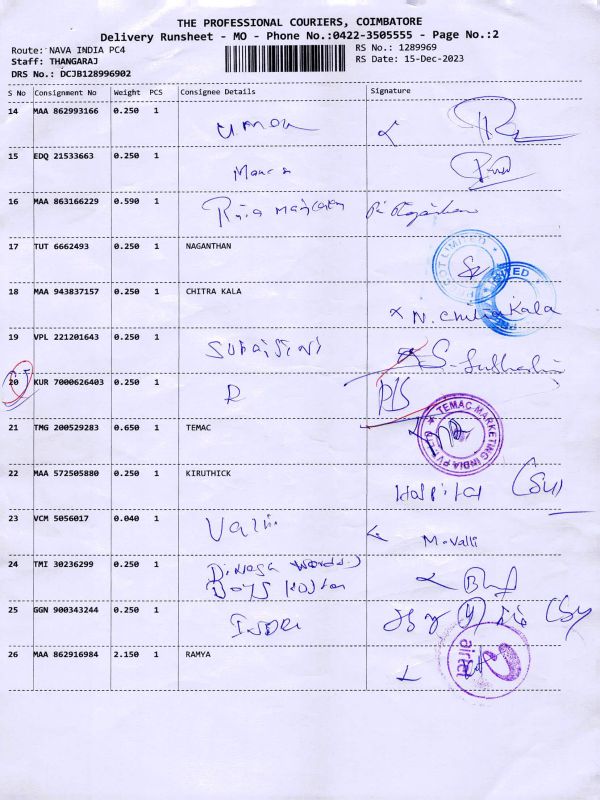 THE PROFESSIONAL COURIERS, COIMBATORE
Delivery Runsheet - MO - Phone No.:0422-3505555 - Page No.:2
Route: NAVA INDIA PC4
RS No.: 1289969
Staff: THANGARAJ
RS Date: 15-Dec-2023
DRS No.: DCJB128996902
S No Consignment No Weight PCS Consignee Details Signature
14 MAA 862993166 0.250 1
15 EDQ 21533663 0.250 1
16 MAA 863166229 0.590 1
17 TUT 6662493 0.250 1 NAGANTHAN
18 MAA 943837157 0.250 1 CHITRA KALA
N. Chitra Kala
19 VPL 221201643 0.250 1
20 KUR 7000626403 0.250 1 R
21 TMG 200529283 0.650 1 TEMAC
TEMAC-MARKETING INDIA PVT LTD
22 MAA 572505880 0.250 1 KIRUTHICK
Hospital
23 VCM 5056017 0.040 1 Valli M. Valli
24 TMI 30236299 0.250 1
25 GGN 900343244 0.250 1
26 MAA 862916984 2.150 1 RAMYA
airtel